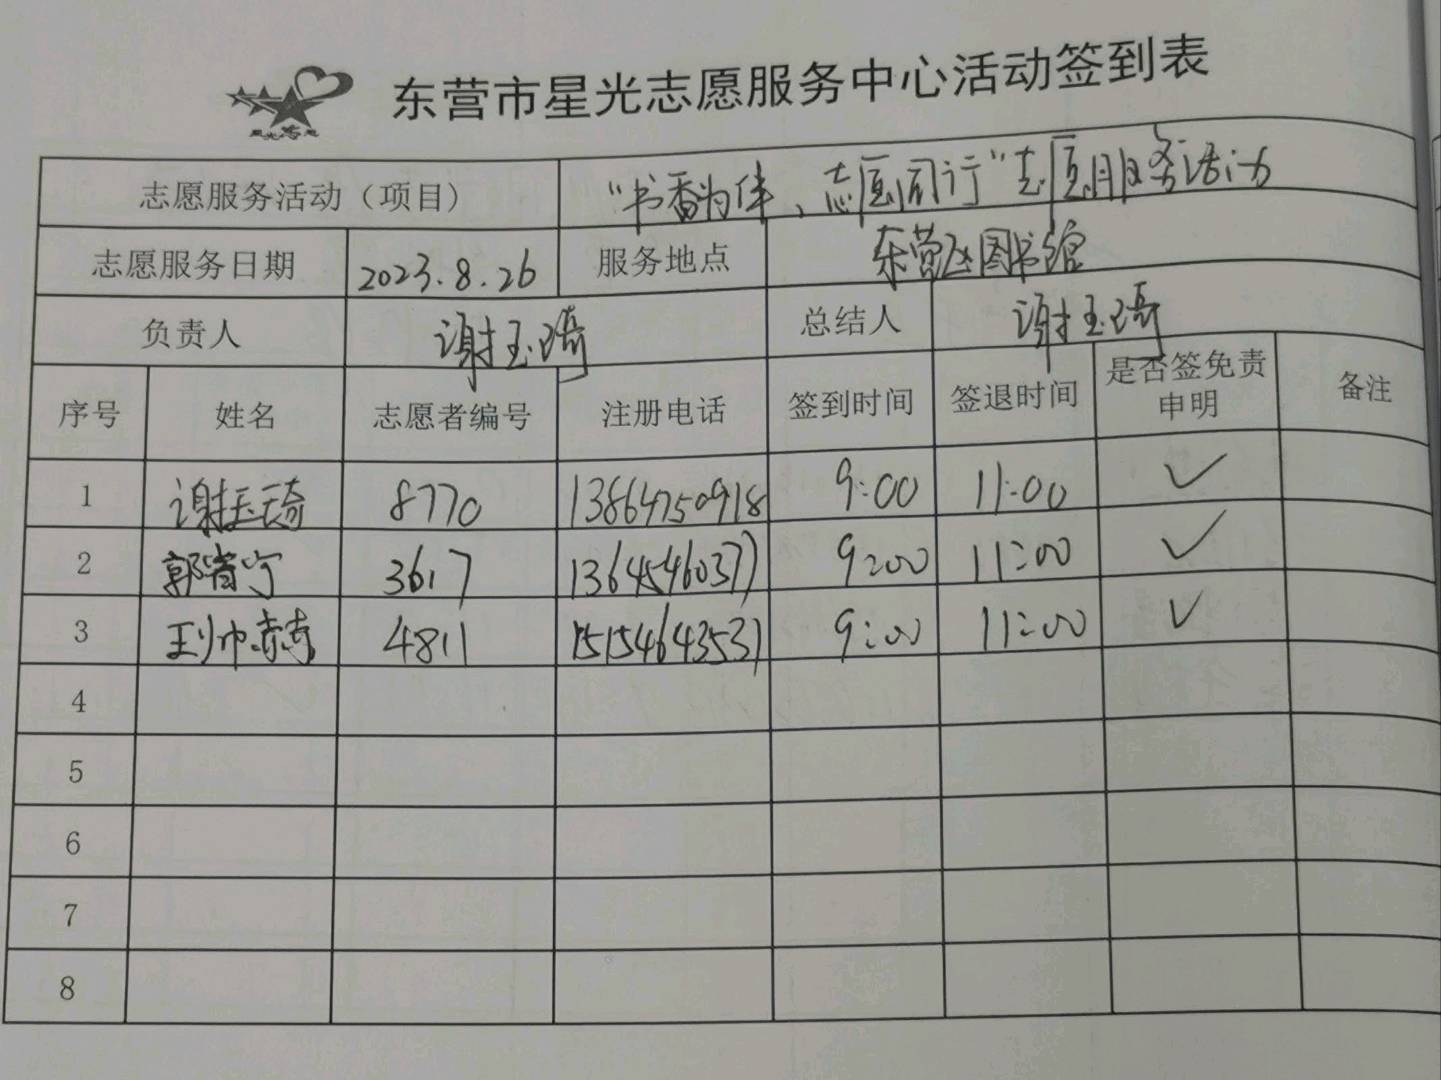 东营市星光志愿服务中心活动签到表
志愿服务活动（项目） “书香为伴、志愿同行”志愿服务活动
志愿服务日期 2023.8.26 服务地点 东营区图书馆
负责人 谢玉琦 总结人 谢玉琦
序号 姓名 志愿者编号 注册电话 签到时间 签退时间 是否签免责申明 备注
1 谢玉琦 8770 13864750918 9:00 11:00 ✓
2 郭 宁 3617 13645460377 9:00 11:00 ✓
3 王 4811 15154643531 9:00 11:00 ✓
4
5
6
7
8